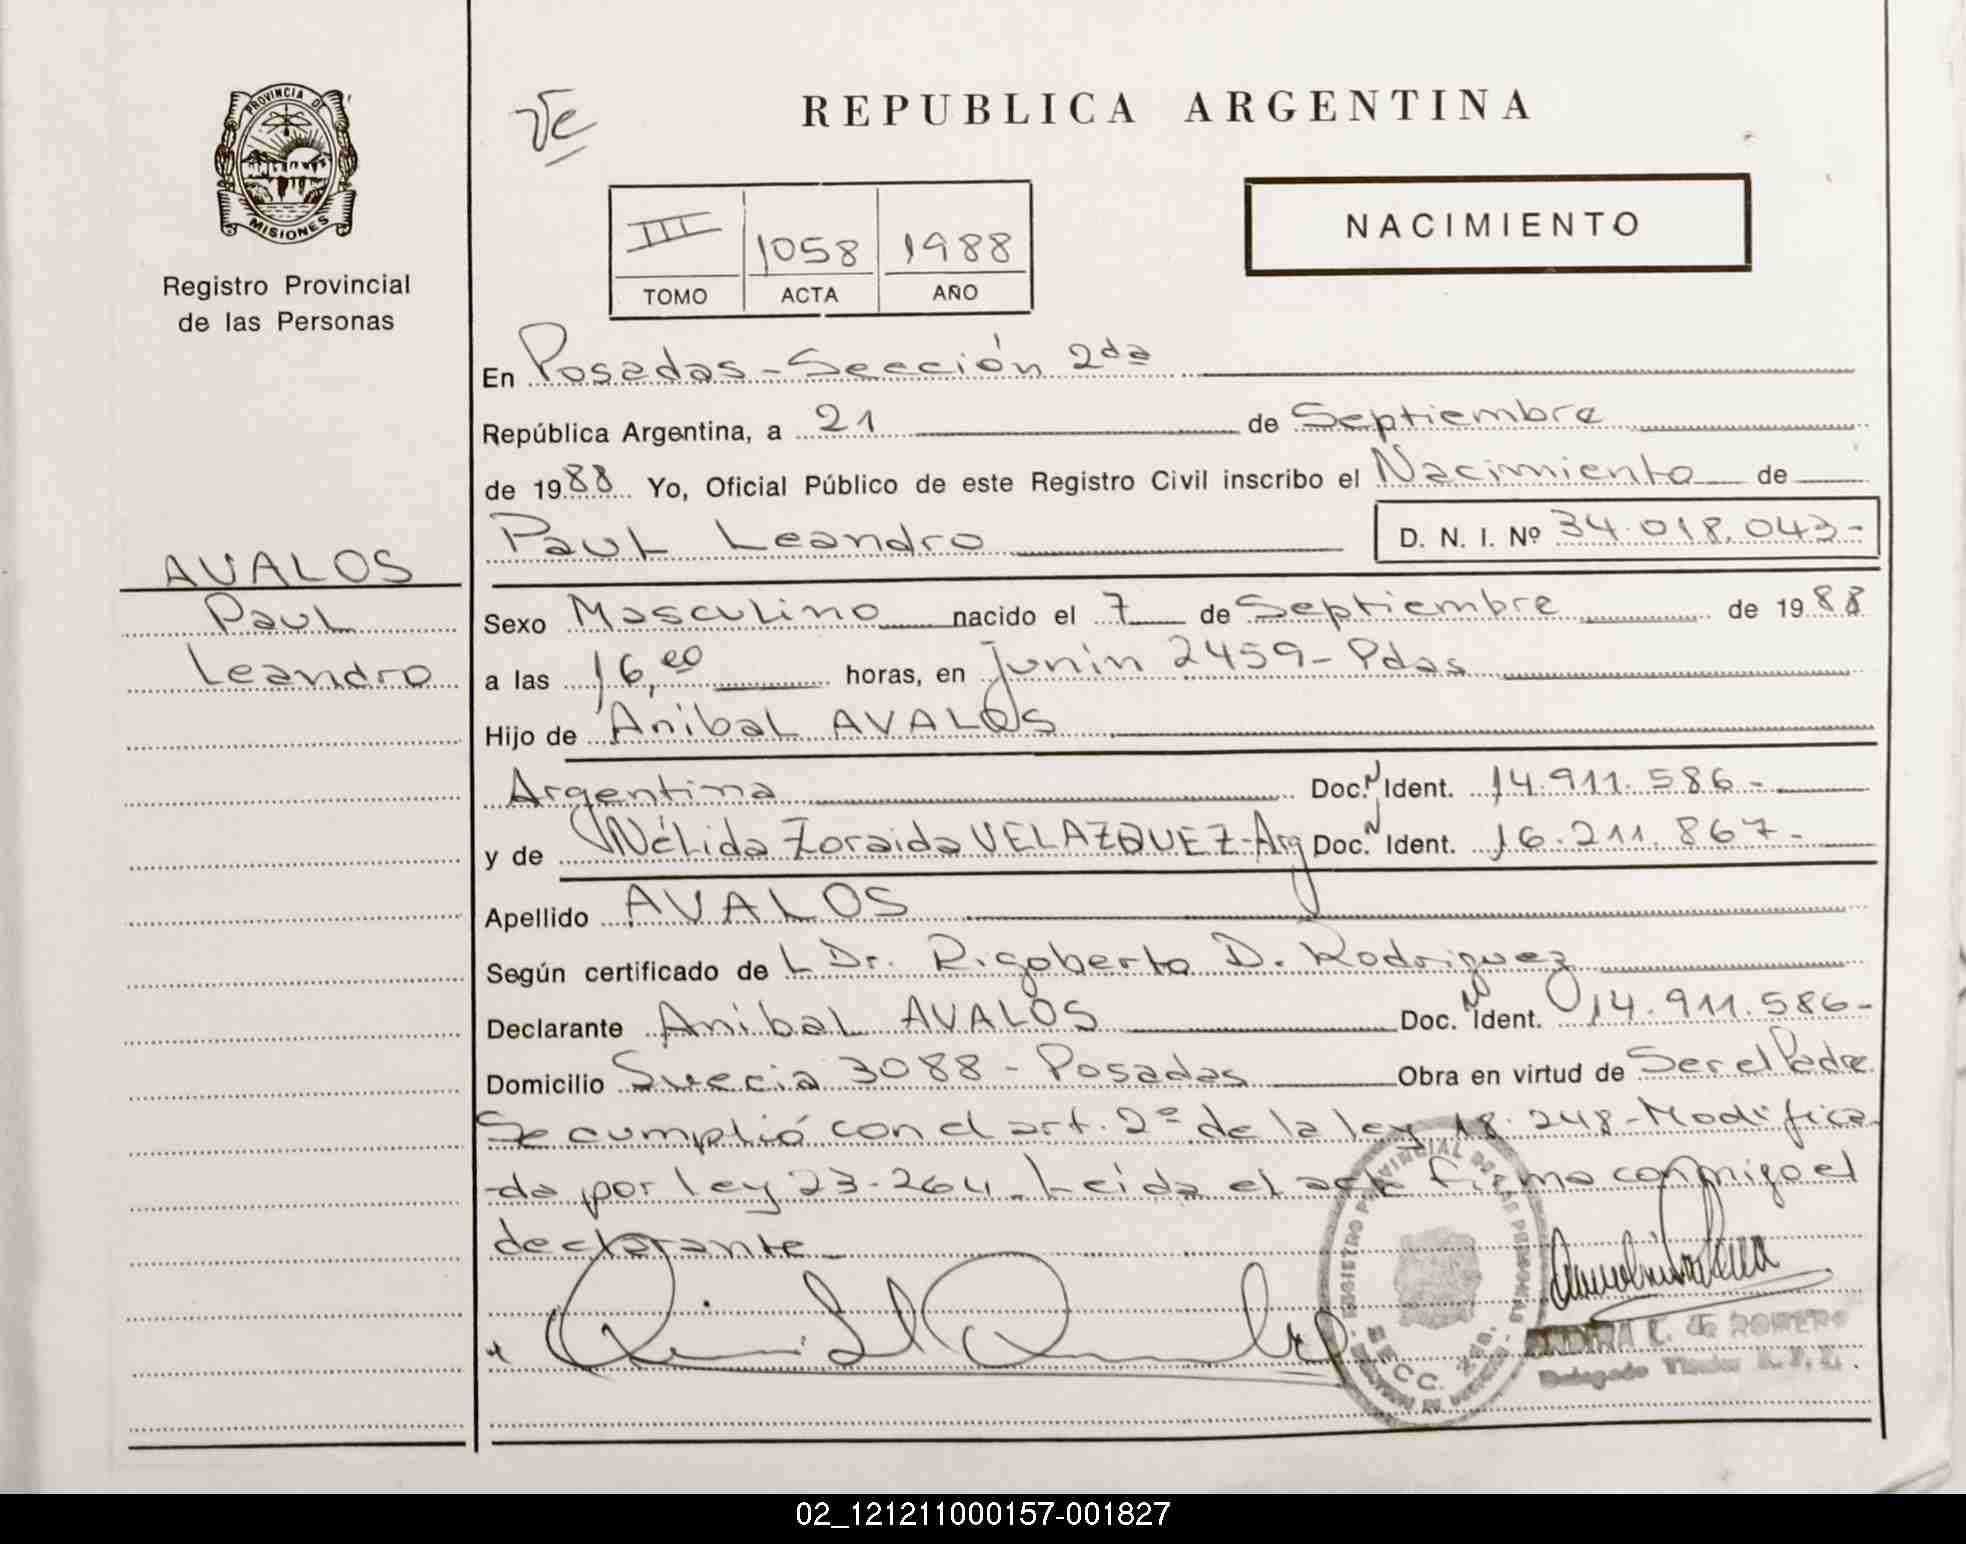 PROVINCIA DE
MISIONES
Registro Provincial
de las Personas
REPUBLICA ARGENTINA
NACIMIENTO
III 1058 1988
TOMO ACTA AÑO
En Posadas - Sección 2da
República Argentina, a 21 de Septiembre
de 1988 Yo, Oficial Público de este Registro Civil inscribo el Nacimiento de
Paul Leandro D. N. I. Nº 34.018.043-
AVALOS
Paul
Leandro
Sexo Masculino nacido el 7 de Septiembre de 1988
a las 16, horas, en Junin 2459 - Pdas
Hijo de Anibal AVALOS
Argentina Doc. N Ident. 14.911.586-
y de Nélida Zoraida VELAZQUEZ-Arg Doc. N Ident. 16.211.867-
Apellido AVALOS
Según certificado de L Dr. Rigoberto D. Rodriguez
Declarante Anibal AVALOS Doc. N Ident. 14.911.586-
Domicilio Suecia 3088 - Posadas Obra en virtud de Ser el Padre
Se cumplió con el art. 2º de la ley 18.248 - Modifica
-da por ley 23-264. Leida el acta firma conmigo el
declarante -
REGISTRO PROVINCIAL DE LAS PERSONAS
SECC.
L. de ROMERO
Delegado Titular
02_121211000157-001827